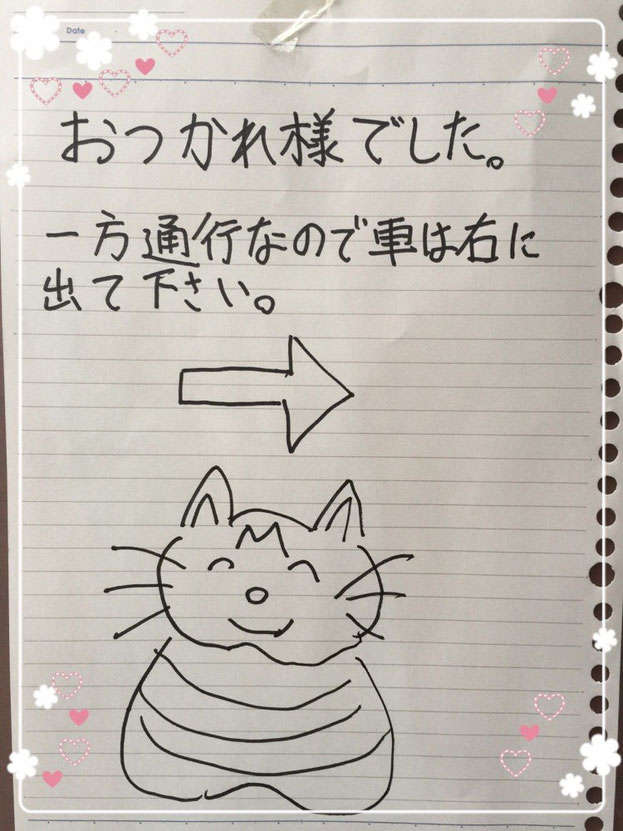 Date
おつかれ様でした。
一方通行なので車は右に
出て下さい。